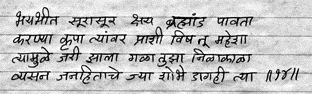 भयभीत सूरासूर क्षय ब्रह्मांड पावता
करण्या कृपा त्यांवर प्राशी विष तू महेशा
त्यामुळे जरी झाला गळा तुझा निळाकाळा
व्यसन जनहिताचे ज्या शोभे डागही त्या ॥१४॥